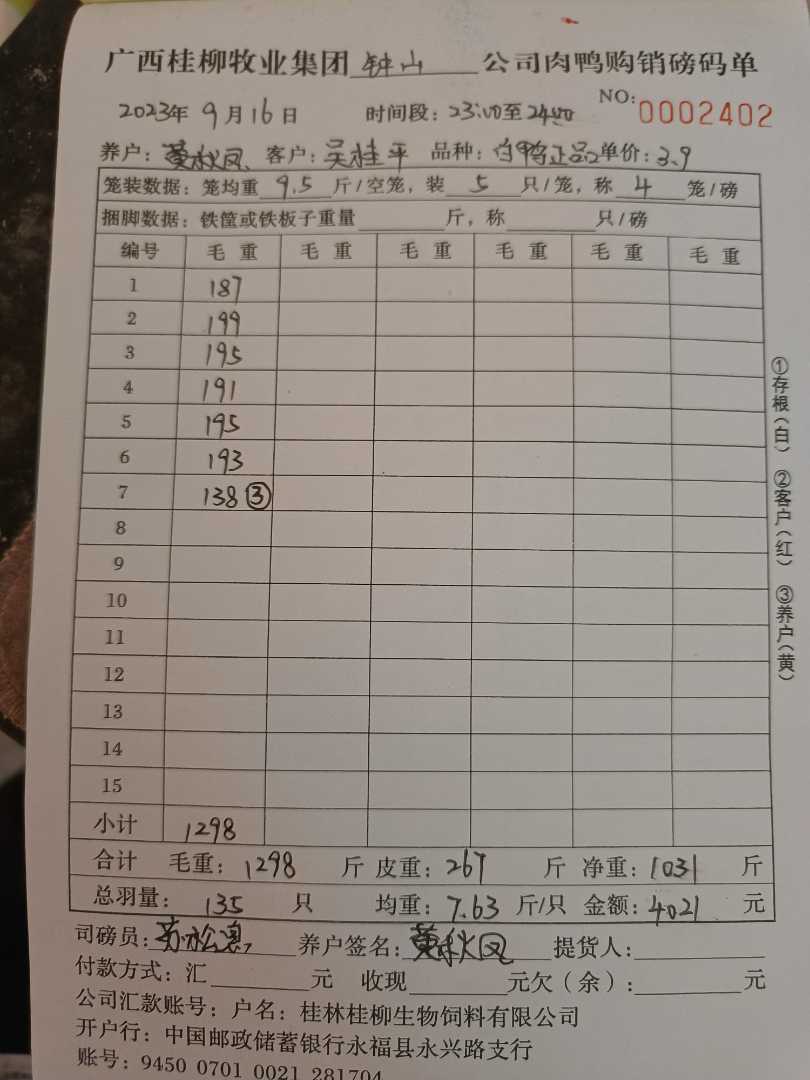 广西桂柳牧业集团 钟山 公司肉鸭购销磅码单
2023年 9月16日 时间段：23:00至24:00 NO: 0002402
养户：黄秋凤 客户：吴桂平 品种：白鸭正品 单价：3.9
笼装数据：笼均重 9.5 斤/空笼，装 5 只/笼，称 4 笼/磅
捆脚数据：铁筐或铁板子重量 斤，称 只/磅
编号 毛重 毛重 毛重 毛重 毛重 毛重
1 187
2 199
3 195
4 191
5 195
6 193
7 138 ③
8
9
10
11
12
13
14
15
小计 1298
合计 毛重：1298 斤 皮重：267 斤 净重：1031 斤
总羽量：135 只 均重：7.63 斤/只 金额：4021 元
司磅员： 养户签名：黄秋凤 提货人：
付款方式：汇 元 收现 元欠（余）： 元
公司汇款账号：户名：桂林桂柳生物饲料有限公司
开户行：中国邮政储蓄银行永福县永兴路支行
账号：9450 0701 0021 281704
①存根（白） ②客户（红） ③养户（黄）